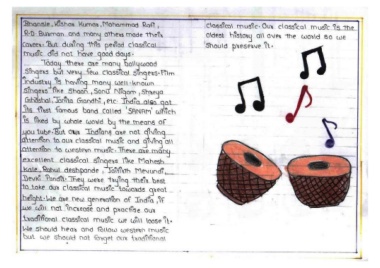 Bhansle, Kishor Kumar, Mohammad Rafi,
R.D. Burman, and many others made their
covers. But during this period classical
music did not have good days.
Today there are many bollywood
singers but very few classical singers. Film
industry is having many well-known
singers like Shaan, Sonu Nigam, Shreya
Ghoshal, Jonita Gandhi, etc. India also got
its first famous band called 'SANAM' which
is liked by whole world by the means of
you tube. But our Indians are not giving
attention to our classical music and giving all
attention to western music. There are many
excellent classical singers like Mahesh
Kale, Rahul deshpande, Jayteerth Mevundi,
Devki Pandit. They were trying their best
to take our classical music towards great
height. We are new generation of India, if
we will not increase and practise our
traditional classical music we will loose it.
We should hear and follow western music
but we should not forget our traditional
classical music. Our classical music is the
oldest history all over the world so we
should preserve it.